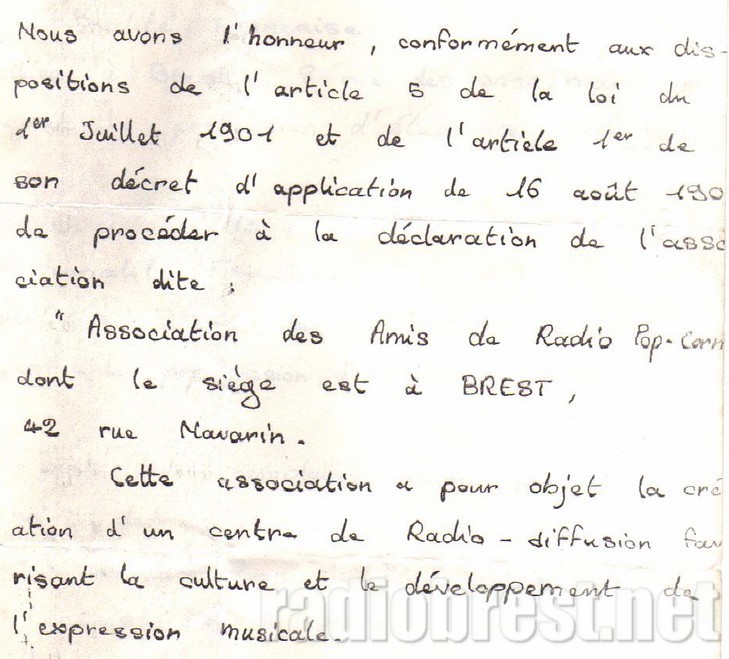 Nous avons l'honneur, conformément aux dis-
positions de l'article 5 de la loi du
1er Juillet 1901 et de l'article 1er de
son décret d'application de 16 août 190
de procéder à la déclaration de l'asso
ciation dite :
" Association des Amis de Radio Pop-Corn
dont le siège est à BREST,
42 rue Navarin.
Cette association a pour objet la cré
ation d'un centre de Radio-diffusion fav
risant la culture et le développement de
l'expression musicale.
radiobrest.net